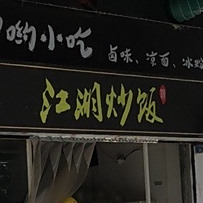 哟小吃
卤味、凉面、冰
江湖炒饭